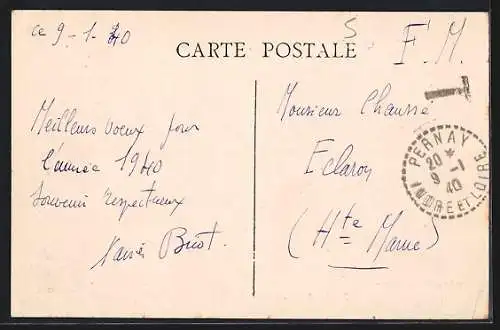 ce 9-1-40
S
CARTE POSTALE
F.M.
T
Meilleurs voeux pour
l'année 1940
Souvenirs respectueux
Briot.
Monsieur Chausse
Eclaron
(Hte Marne)
PERNAY
20 *
9 -1
40
INDRE ET LOIRE